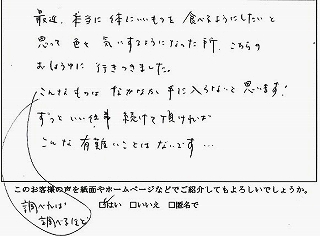 最近、本当に体にいいものを食べるようにしたいと
思って色々気いするようになった所、こちらの
おばうけに行きつきました。
こんなものはなかなか手に入らないと思います!
ずっといい仕事続けて頂ければ
こんな有難いことはないです…
このお客様の声を紙面やホームページなどでご紹介してもよろしいでしょうか。
調べれば
調べるほど
□はい □いいえ □匿名で